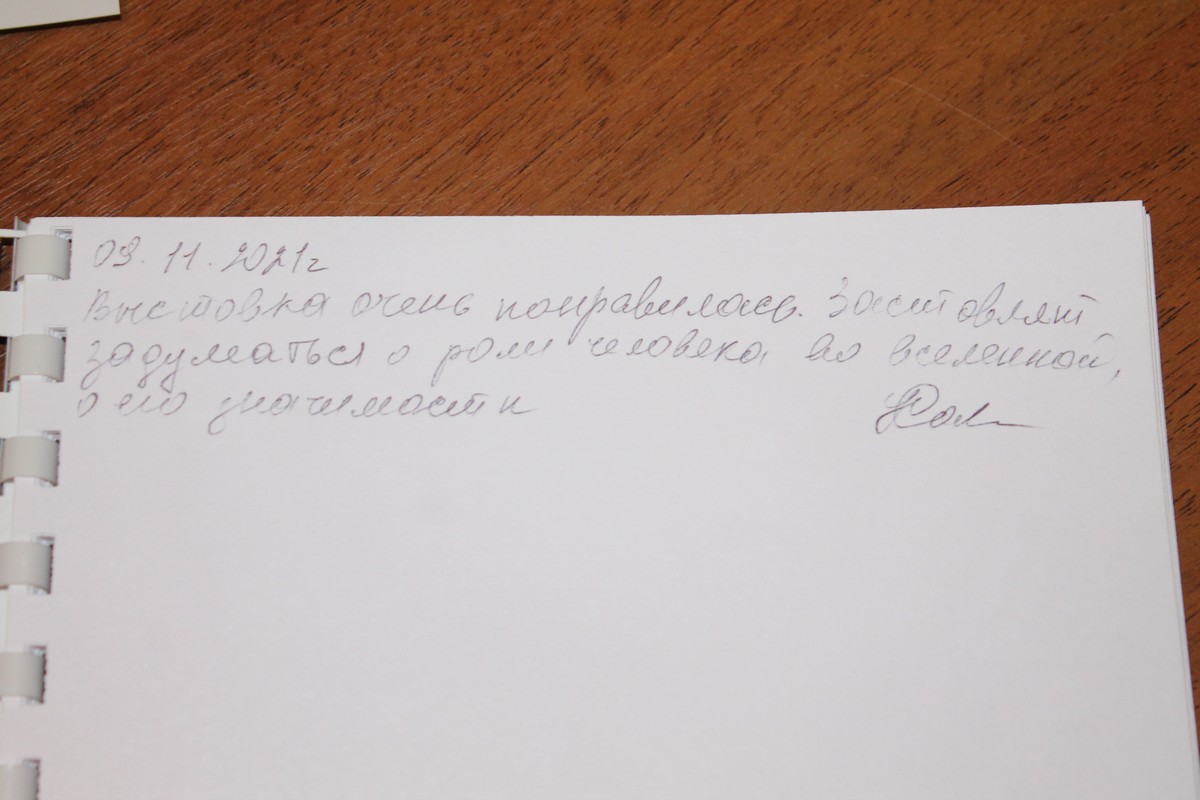 09.11.2021г
Выставка очень понравилась. Заставляет
задуматься о роли человека во вселенной,
о его значимости